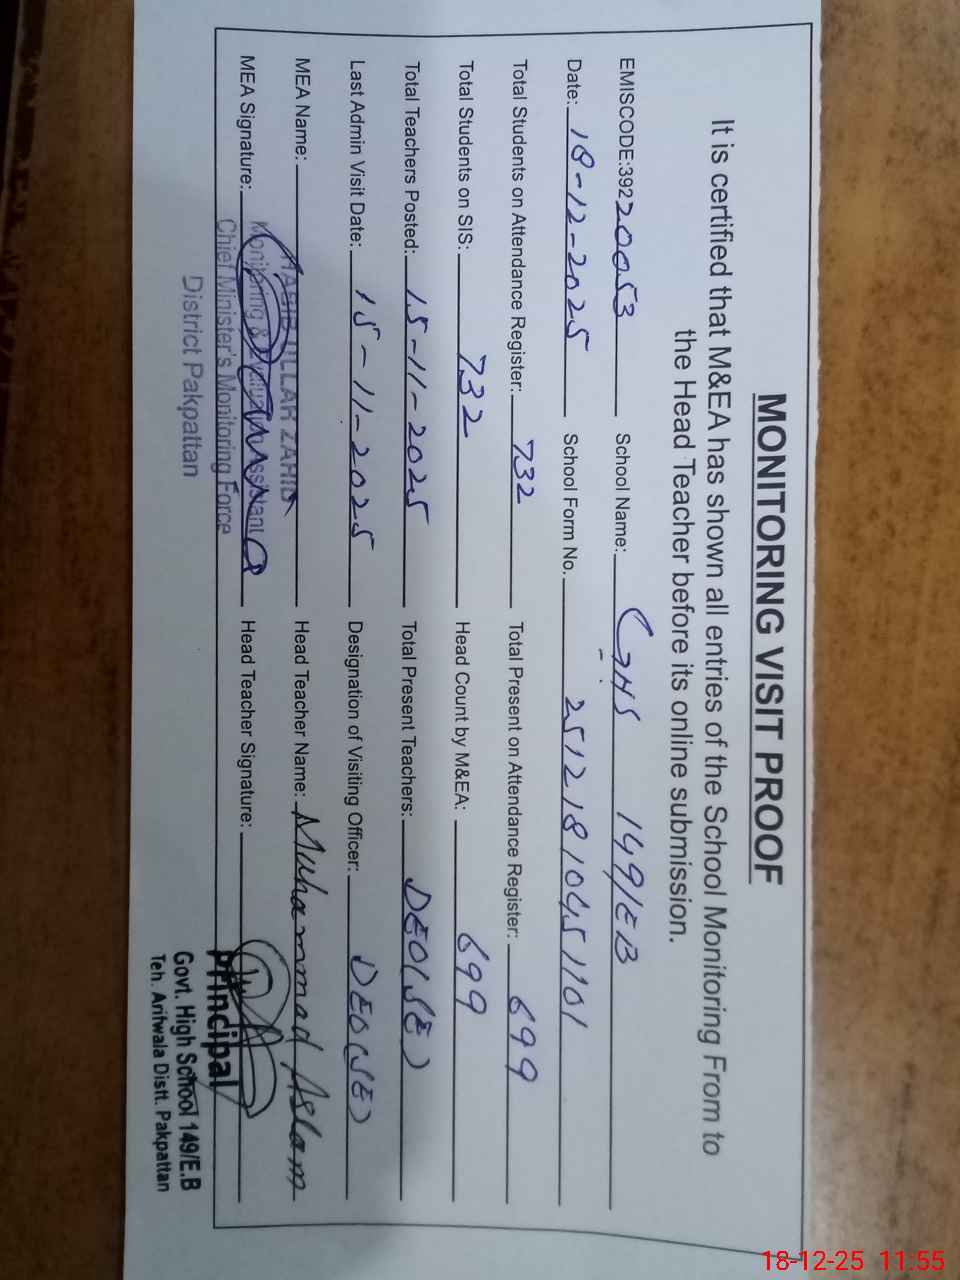 MONITORING VISIT PROOF
It is certified that M&EA has shown all entries of the School Monitoring From to
the Head Teacher before its online submission.
EMISCODE:39220053 School Name: GHS 149/EB
Date: 18-12-2025 School Form No. 25121810451101
Total Students on Attendance Register: 732 Total Present on Attendance Register: 699
Total Students on SIS: 732 Head Count by M&EA: 699
Total Teachers Posted: 15-11-2025 Total Present Teachers: DEO(SE)
Last Admin Visit Date: 15-11-2025 Designation of Visiting Officer: DEO(SE)
MEA Name: ZAHID Head Teacher Name: Muhammad Aslam
MEA Signature: Head Teacher Signature:
Monitoring & Assistant
Chief Minister's Monitoring Force
District Pakpattan
Principal
Govt. High School 149/E.B
Teh. Arifwala Distt. Pakpattan
18-12-25 11:55